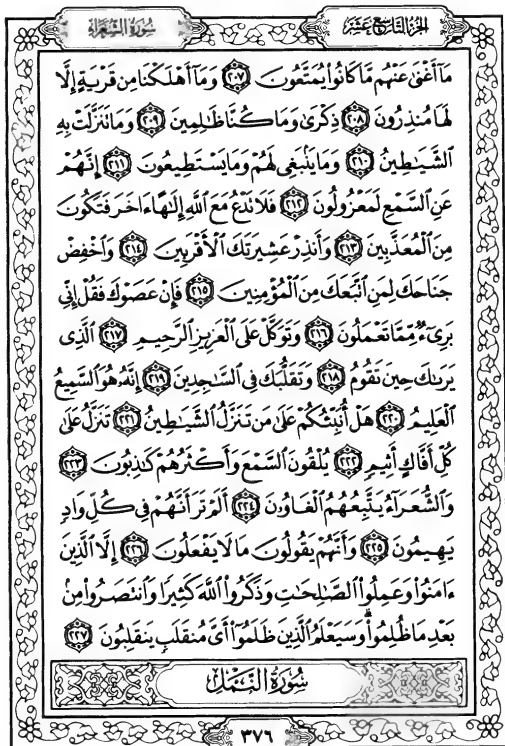 الجُزءُ التَّاسِعَ عَشَرَ
سُورَةُ الشُّعَرَاءِ
مَآ أَغْنَىٰ عَنْهُم مَّا كَانُوا۟ يُمَتَّعُونَ ٢٠٧ وَمَآ أَهْلَكْنَا مِن قَرْيَةٍ إِلَّا
لَهَا مُنذِرُونَ ٢٠٨ ذِكْرَىٰ وَمَا كُنَّا ظَـٰلِمِينَ ٢٠٩ وَمَا تَنَزَّلَتْ بِهِ
ٱلشَّيَـٰطِينُ ٢١٠ وَمَا يَنۢبَغِى لَهُمْ وَمَا يَسْتَطِيعُونَ ٢١١ إِنَّهُمْ
عَنِ ٱلسَّمْعِ لَمَعْزُولُونَ ٢١٢ فَلَا تَدْعُ مَعَ ٱللَّهِ إِلَـٰهًا ءَاخَرَ فَتَكُونَ
مِنَ ٱلْمُعَذَّبِينَ ٢١٣ وَأَنذِرْ عَشِيرَتَكَ ٱلْأَقْرَبِينَ ٢١٤ وَٱخْفِضْ
جَنَاحَكَ لِمَنِ ٱتَّبَعَكَ مِنَ ٱلْمُؤْمِنِينَ ٢١٥ فَإِنْ عَصَوْكَ فَقُلْ إِنِّى
بَرِىٓءٌ مِّمَّا تَعْمَلُونَ ٢١٦ وَتَوَكَّلْ عَلَى ٱلْعَزِيزِ ٱلرَّحِيمِ ٢١٧ ٱلَّذِى
يَرَىٰكَ حِينَ تَقُومُ ٢١٨ وَتَقَلُّبَكَ فِى ٱلسَّـٰجِدِينَ ٢١٩ إِنَّهُۥ هُوَ ٱلسَّمِيعُ
ٱلْعَلِيمُ ٢٢٠ هَلْ أُنَبِّئُكُمْ عَلَىٰ مَن تَنَزَّلُ ٱلشَّيَـٰطِينُ ٢٢١ تَنَزَّلُ عَلَىٰ
كُلِّ أَفَّاكٍ أَثِيمٍ ٢٢٢ يُلْقُونَ ٱلسَّمْعَ وَأَكْثَرُهُمْ كَـٰذِبُونَ ٢٢٣
وَٱلشُّعَرَآءُ يَتَّبِعُهُمُ ٱلْغَاوُۥنَ ٢٢٤ أَلَمْ تَرَ أَنَّهُمْ فِى كُلِّ وَادٍ
يَهِيمُونَ ٢٢٥ وَأَنَّهُمْ يَقُولُونَ مَا لَا يَفْعَلُونَ ٢٢٦ إِلَّا ٱلَّذِينَ
ءَامَنُوا۟ وَعَمِلُوا۟ ٱلصَّـٰلِحَـٰتِ وَذَكَرُوا۟ ٱللَّهَ كَثِيرًا وَٱنتَصَرُوا۟ مِنۢ
بَعْدِ مَا ظُلِمُوا۟ ۗ وَسَيَعْلَمُ ٱلَّذِينَ ظَلَمُوٓا۟ أَىَّ مُنقَلَبٍ يَنقَلِبُونَ ٢٢٧
سُورَةُ النَّمْلِ
٣٧٦